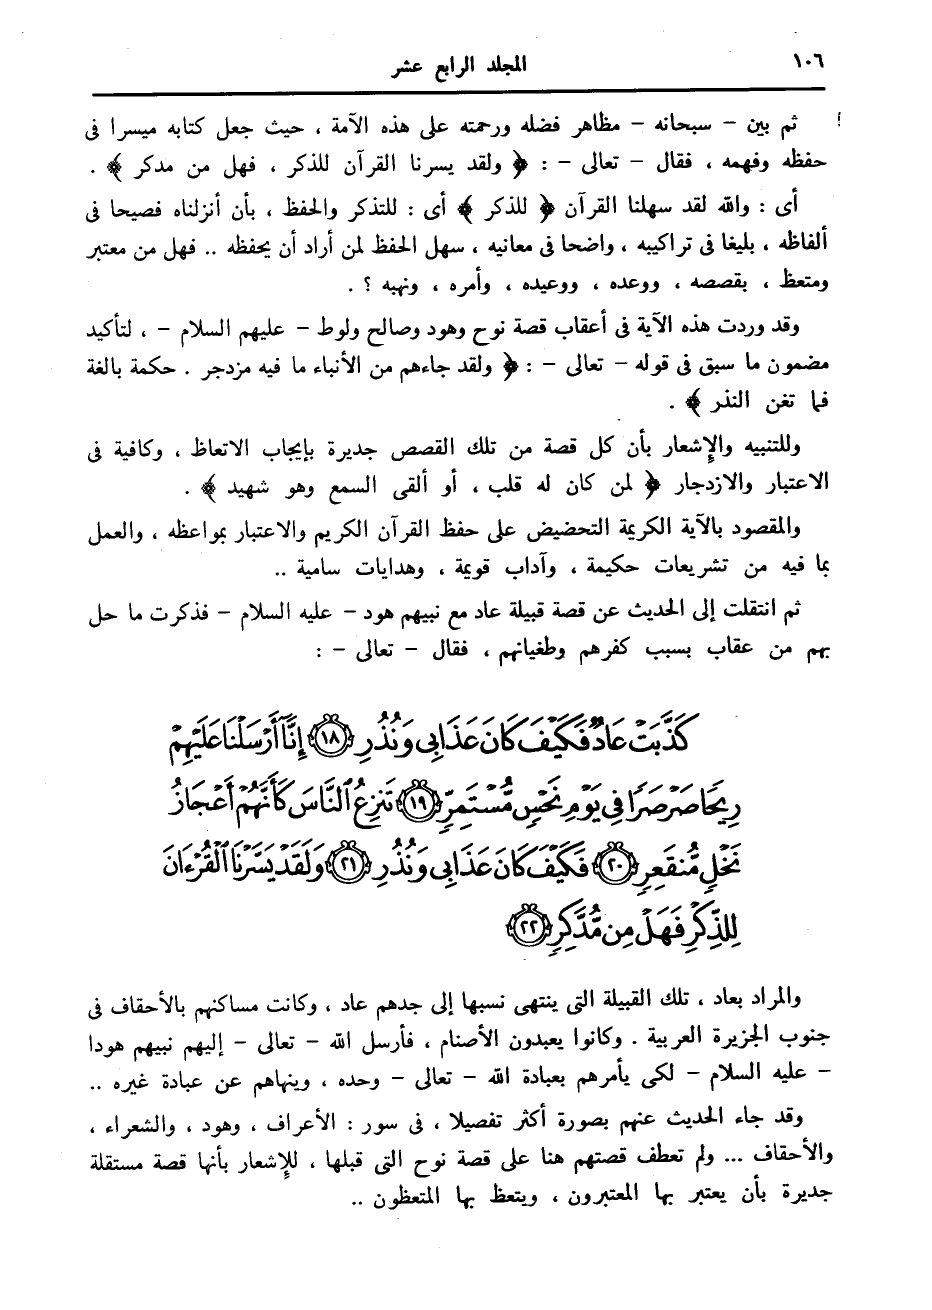 ١٠٦
المجلد الرابع عشر
ثم بين – سبحانه – مظاهر فضله ورحمته على هذه الأمة ، حيث جعل كتابه ميسرا فى
حفظه وفهمه ، فقال – تعالى – : ﴿ ولقد يسرنا القرآن للذكر ، فهل من مدكر ﴾ .
أى : والله لقد سهلنا القرآن ﴿ للذكر ﴾ أى : للتذكر والحفظ ، بأن أنزلناه فصيحا فى
ألفاظه ، بليغا فى تراكيبه ، واضحا فى معانيه ، سهل الحفظ لمن أراد أن يحفظه .. فهل من معتبر
ومتعظ ، بقصصه ، ووعده ، ووعيده ، وأمره ، ونهيه ؟ .
وقد وردت هذه الآية فى أعقاب قصة نوح وهود وصالح ولوط – عليهم السلام – ، لتأكيد
مضمون ما سبق فى قوله – تعالى – : ﴿ ولقد جاءهم من الأنباء ما فيه مزدجر . حكمة بالغة
فما تغن النذر ﴾ .
وللتنبيه والإشعار بأن كل قصة من تلك القصص جديرة بإيجاب الاتعاظ ، وكافية فى
الاعتبار والازدجار ﴿ لمن كان له قلب ، أو ألقى السمع وهو شهيد ﴾ .
والمقصود بالآية الكريمة التحضيض على حفظ القرآن الكريم والاعتبار بمواعظه ، والعمل
بما فيه من تشريعات حكيمة ، وآداب قويمة ، وهدايات سامية ..
ثم انتقلت إلى الحديث عن قصة قبيلة عاد مع نبيهم هود – عليه السلام – فذكرت ما حل
بهم من عقاب بسبب كفرهم وطغيانهم ، فقال – تعالى – :
كَذَّبَتْ عَادٌ فَكَيْفَ كَانَ عَذَابِى وَنُذُرِ ١٨ إِنَّآ أَرْسَلْنَا عَلَيْهِمْ
رِيحًا صَرْصَرًا فِى يَوْمِ نَحْسٍ مُّسْتَمِرٍّ ١٩ تَنزِعُ ٱلنَّاسَ كَأَنَّهُمْ أَعْجَازُ
نَخْلٍ مُّنقَعِرٍ ٢٠ فَكَيْفَ كَانَ عَذَابِى وَنُذُرِ ٢١ وَلَقَدْ يَسَّرْنَا ٱلْقُرْءَانَ
لِلذِّكْرِ فَهَلْ مِن مُّدَّكِرٍ ٢٢
والمراد بعاد ، تلك القبيلة التى ينتهى نسبها إلى جدهم عاد ، وكانت مساكنهم بالأحقاف فى
جنوب الجزيرة العربية . وكانوا يعبدون الأصنام ، فأرسل الله – تعالى – إليهم نبيهم هودا
– عليه السلام – لكى يأمرهم بعبادة الله – تعالى – وحده ، وينهاهم عن عبادة غيره ..
وقد جاء الحديث عنهم بصورة أكثر تفصيلا ، فى سور : الأعراف ، وهود ، والشعراء ،
والأحقاف ... ولم تعطف قصتهم هنا على قصة نوح التى قبلها ، للإشعار بأنها قصة مستقلة
جديرة بأن يعتبر بها المعتبرون ، ويتعظ بها المتعظون ..